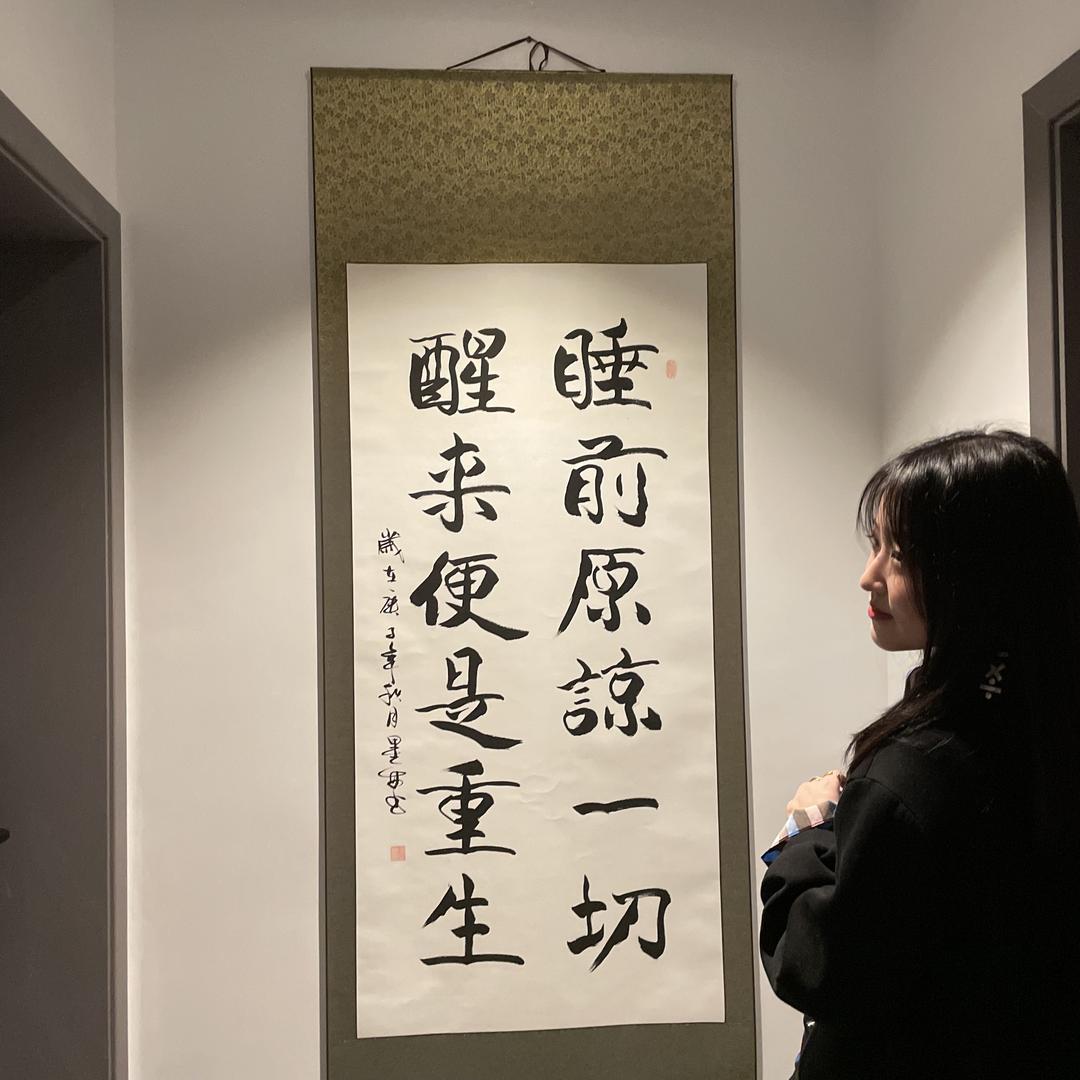 睡前原諒一切
醒来便是重生
歲在庚子年秋月墨安书